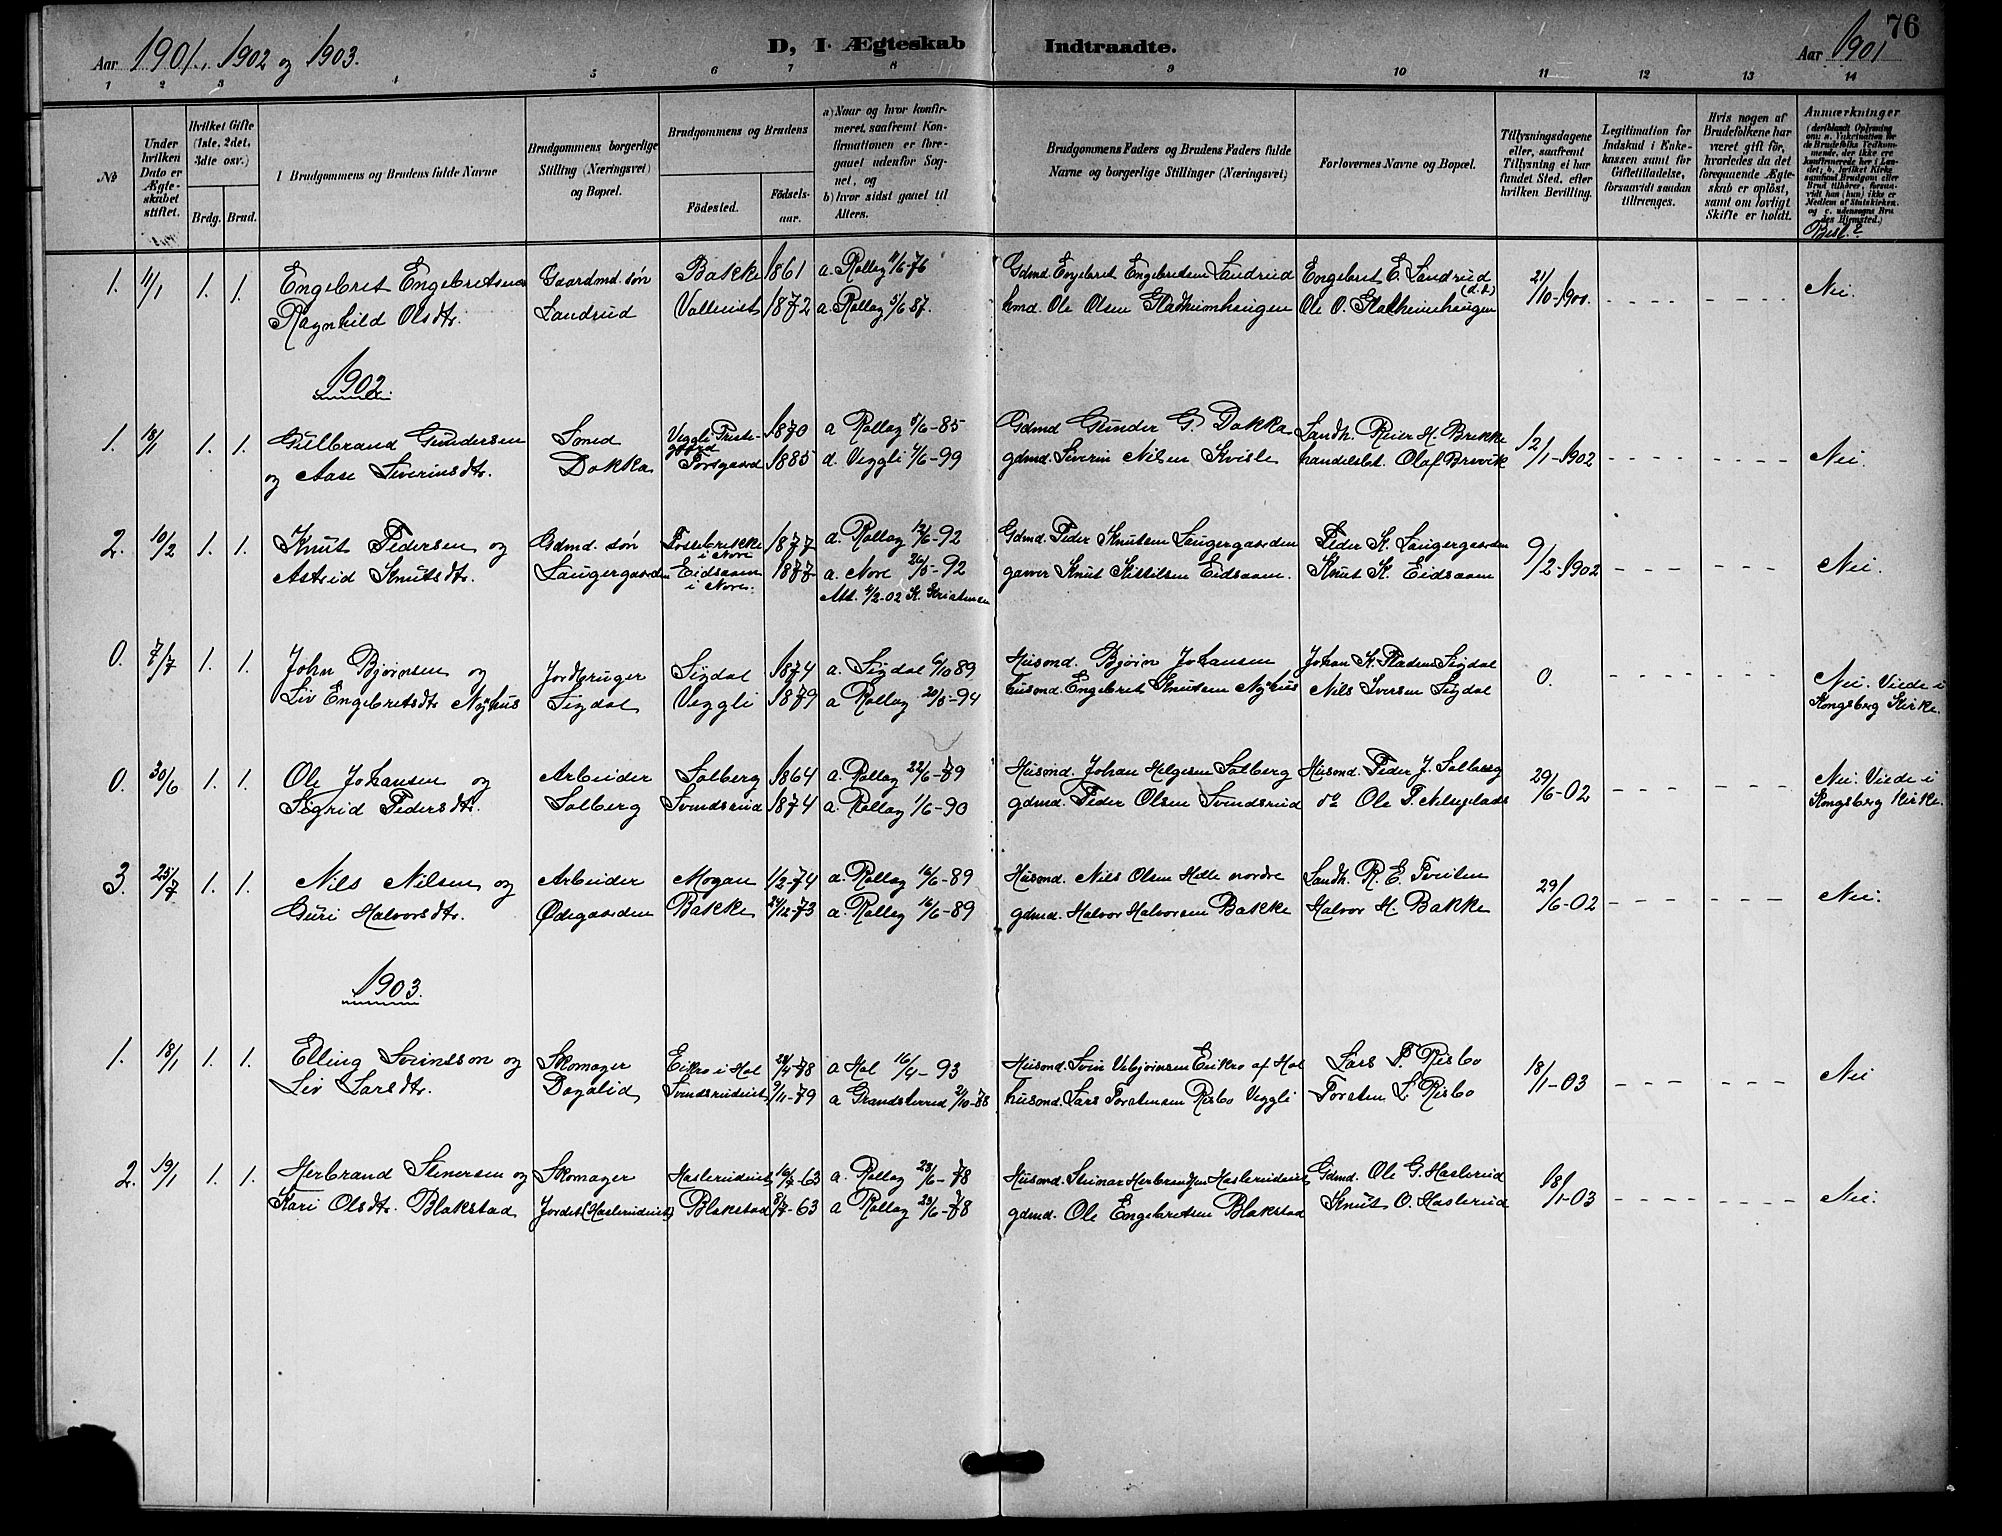 76
Aar 1901, 1902 og 1903.
D, I. Ægteskab Indtraadte.
Aar 1901
1 2 3 4 5 6 7 8 9 10 11 12 13 14
№
Under hvilken Dato er Ægteskabet stiftet.
Hvilket Gifte (1ste, 2det, 3die osv.)
Brdg. Brud.
I Brudgommens og Brudens fulde Navne
Brudgommens borgerlige Stilling (Næringsvei) og Bopæl.
Brudgommens og Brudens
Fødested. Fødselsaar.
a) Naar og hvor konfirmeret, saafremt Konfirmationen er foregaaet udenfor Sognet, og
b) hvor sidst gaaet til Alters.
Brudgommens Faders og Brudens Faders fulde Navne og borgerlige Stillinger (Næringsvei)
Forlovernes Navne og Bopæl.
Tillysningsdagene eller, saafremt Tillysning ei har fundet Sted, efter hvilken Bevilling.
Legitimation for Indskud i Enkekassen samt for Giftetilladelse, forsaavidt saadan tiltrænges.
Hvis nogen af Brudefolkene har været gift før, hvorledes da det foregaaende Ægteskab er opløst, samt om lovligt Skifte er holdt.
Anmærkninger
Besl.?
1. 11/1 1. 1. Engebret Engebretsen Gaardmd. søn Bakke 1861 a. Rollag 11/6-76 Gdmd. Engebret Engebretsen Landrud Engebret E. Landrud 21/10-1900. Nei.
Ragnhild Olsdtr. Landrud Valleviet 1872 a. Rollag 5/6 87. hmd. Ole Olsen Gladheimhaugen Ole O. Gladheimhaugen
1902.
1. 18/1 1. 1. Gulbrand Gundersen Lomd Veggli Prestegaard 1870 a Rollag 5/6-85 Gdmd Gunder G Dokka Landh. Reier H. Brekke 12/1-1902 Nei.
og Aase Siverinsdtr. Dokka Torsgaard 1885 a. Veggli 4/6-99 gdmd. Siverin Nilsen Kvisle handelsbet. Olaf Brevik
2. 10/2 1. 1. Knut Pedersen og Gdmd. søn Fossebrekke i Nore 1877 a. Rollag 12/6-92 Gdmd. Peder Knutsen Laugergaarden Peder K. Laugergaarden 9/2-1902 Nei.
Astrid Knutsdtr. Laugergaarden Eidsaaen i Nore. 1877 a. Nore 26/5-92 gaver Knut Kittilsen Eidsaaen. Knut K. Eidsaaen
Att. 4/2-02 K. Kristensen
0. 7/7 1. 1. John Bjørnsen og Jordbruger Sigdal 1874 a. Sigdal 6/10 89 Husmd. Bjørn Johansen Johan K. Pladsen Sigdal 0. Nei. Viede i
Liv Engebretsdtr Nyhus Sigdal Veggli 1879 a Rollag 20/5-94 husmd. Engebret Knutsen Nyhus Nils Iversen Sigdal Kongsberg Kirke.
0. 30/6 1. 1. Ole Johansen og Arbeider Solberg 1864 a. Rollag 22/6-79 Husmd. Johan Helgesen Solberg Husmd. Peder J. Solberg 29/6-02 Nei. Viede i
Sigrid Pedersdtr. Solberg Svindsrud 1874 a. Rollag 1/6-90 gdmd. Peder Olsen Svindsrud do Ole P. Kongsberg Kirke.
3. 25/7 1. 1. Nils Nilsen og Arbeider Mogan 1/2-74 a. Rollag 16/6-89 Husmd. Nils Olsen Helle nordre Landh. R. E. Tveiten 29/6-02 Nei.
Guri Halvorsdtr. Ødegaarden Bakke 24/12-73 a. Rollag 16/6-89 gdmd. Halvor Halvorsen Bakke Halvor H. Bakke
1903.
1. 18/1 1. 1. Elling Svendsson og Skomager Eikro i Hol 28/4-78 a Hol 16/4-93 Husmd. Svein Vebjørnsen Eikro af Hol Lars T. Risbo 18/1-03 Nei
Liv Larsdtr. Dagalid Svindsrudeiet 9/11-79 a Grandsherred husmd. Lars Torstensen Risbo Veggli Torsten L. Risbo
2. 19/1 1. 1. Herbrand Steinersen og Skomager Haslerudeiet 16/7-63 a. Rollag 23/6-78 Husmd. Steinar Herbrandsen Haslerudeiet Gdmd. Ole G. Haslerud 18/1-03 Nei.
Kari Olsdtr. Blakstad Jordet (Haslerudeiet) Blakstad 8/7-63 a Rollag 23/6-78 gdmd. Ole Engebretsen Blakstad Knut O. Haslerud